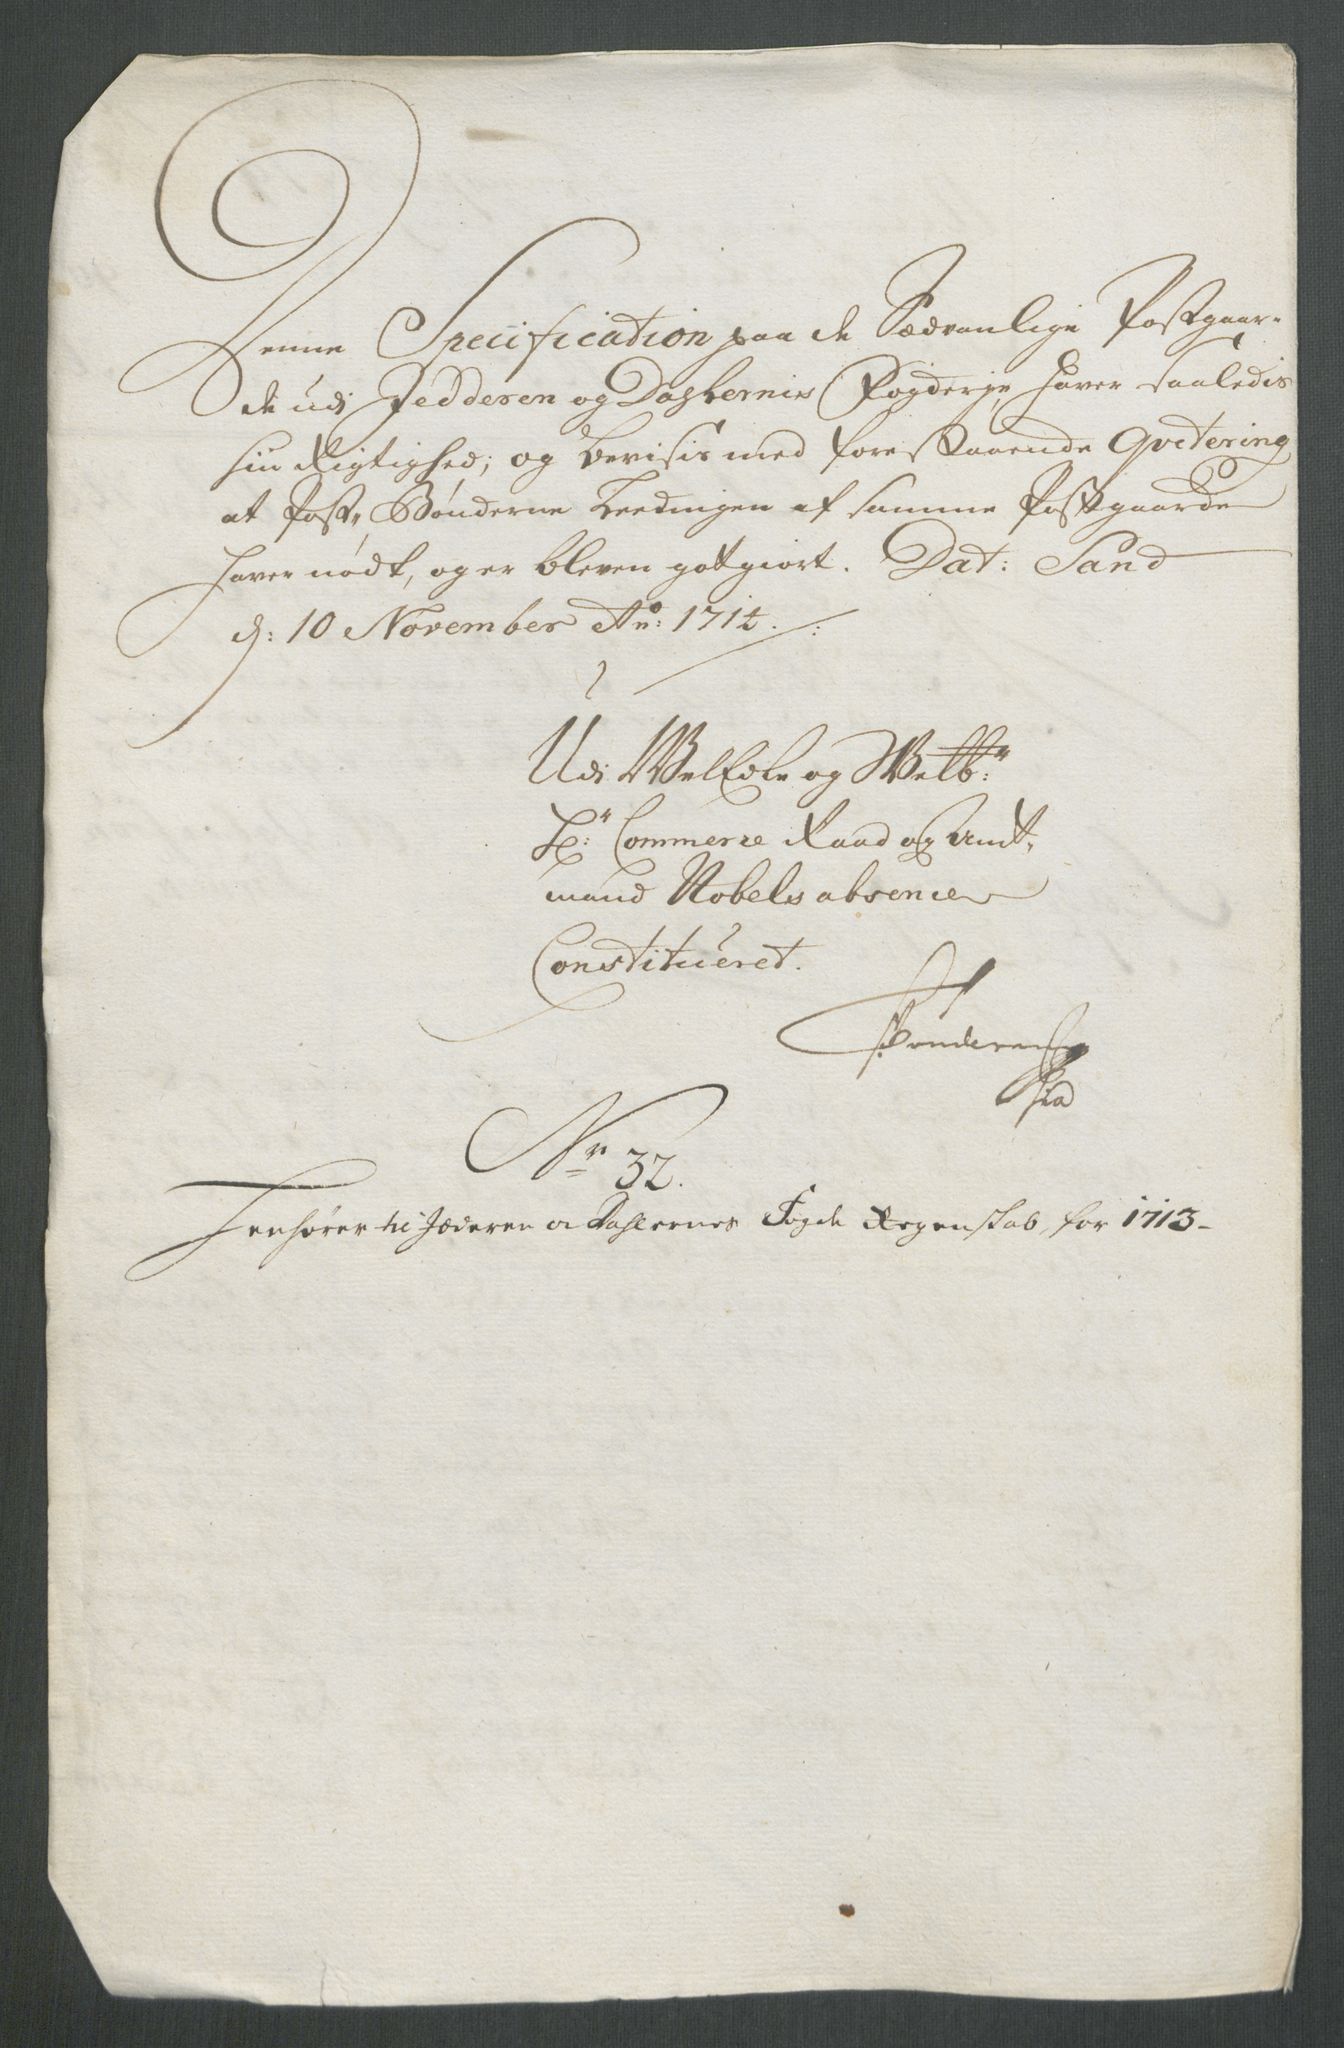 Denne Specification paa de Sædvanlige Postgaar-
de udi Jedderen og Dahlernis Fogderje haver saaledis
sin Rigtighed; og bevisis med forestaaende Qvitering
at Post, Bønderne Leedingen af samme Postgaarde
haver nødt, og er bleven gotgiort. Dat: Sand
d: 10 November Ao: 1714.
Udi WelEdle og Welb:r
Hr: Commerce Raad og Amt,
mand Nobels absence
Constitueret.
Nr 32.
Henhører til Jæderen og Dahlernes Fogde Regenskab, for 1713-